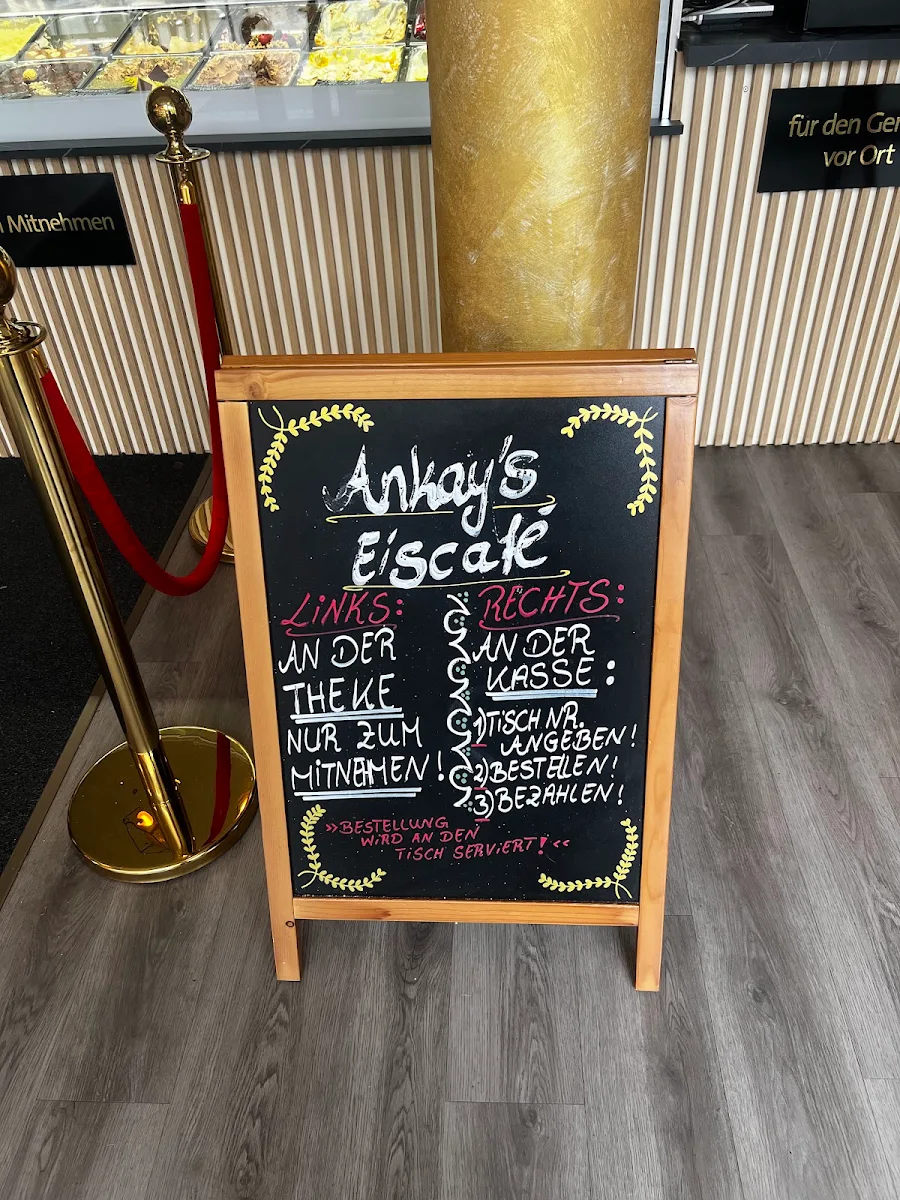 Mitnehmen
für den
vor Ort
Ankay's
Eiscafé
LINKS:
AN DER
THEKE
NUR ZUM
MITNEHMEN!
RECHTS:
AN DER
KASSE:
1) TISCH NR.
ANGEBEN!
2) BESTELLEN!
3) BEZAHLEN!
»BESTELLUNG
WIRD AN DEN
TISCH SERVIERT!«